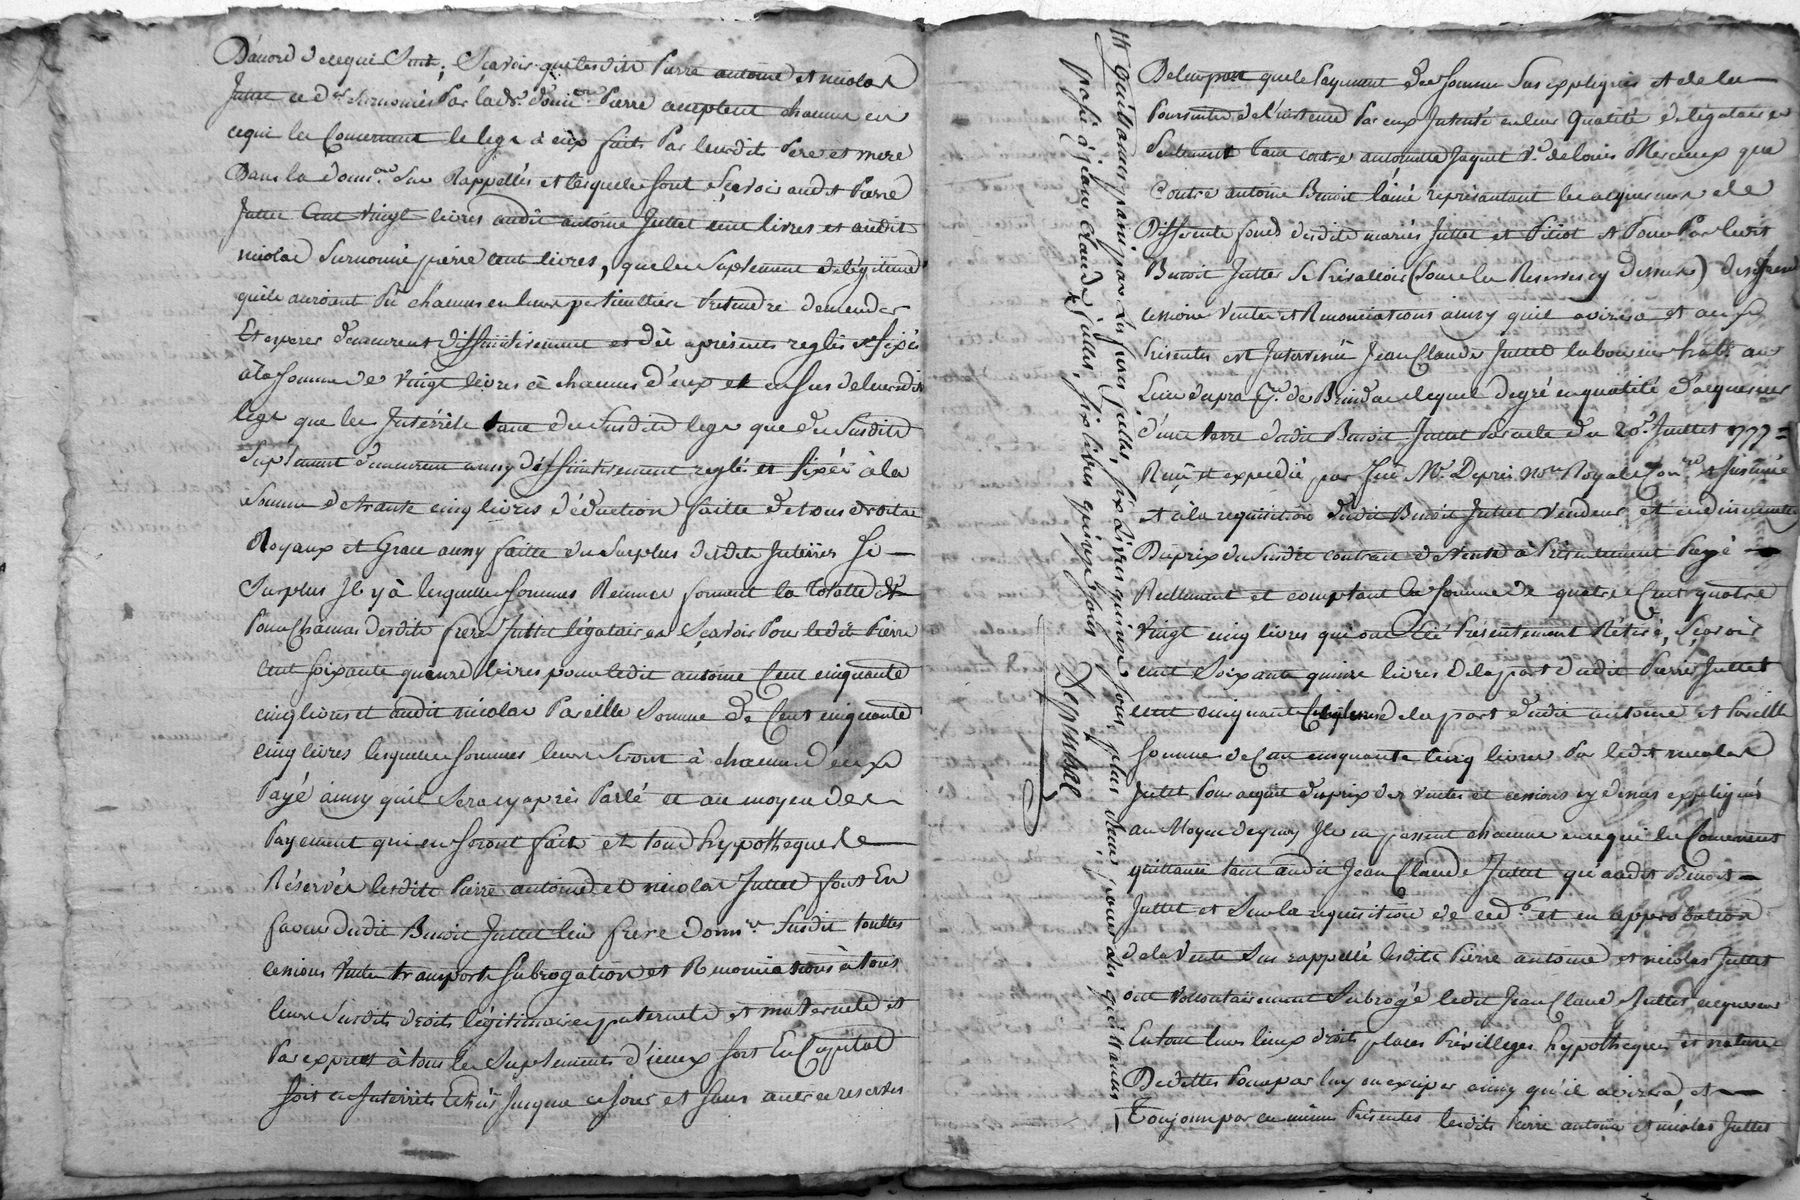 D'acord de ce qui Suit, Scavoir que lesdits Pierre antoine et nicolas
Juttet ce der surnommé Par lad. donnon Pierre acceptent chacun en
ce qui les Concernant le legs à eux faits Par leursdits Pere et mere
Dans la donnon Sus Rappellés et lesquels sont Scavoir audit Pierre
Juttet Cent vingt livres audit antoine Juttet cent livres et audit
nicolas Surnommé pierre cent livres, que les Suplement de légitime
qu'ils auroient Pu chacun en leurs particulliers Pretendre demender
Et esperer demeurent diffinitivement et dès à présents reglés et fixés
à la Somme de vingt livres à chacuns d'eux et en sus de leursdits
legs que les Intérrêts tant des Susdits legs que du Susdits
Suplement demeurent aussy diffinitivement reglés et fixés à la
Somme de trante cinq livres déduction faitte de tous droits
Royaux et Grace aussy faitte du Surplus desdits Intérrêts Si
Surplus Il y à lesquelles sommes Réunies forment la totalle de
Pour Chacuns desdits freres Juttet légataires Sçavoir Pour ledit Pierre
Cent soixante quinze livres pour ledit antoine Cent cinquante
cinq livres et audit nicolas Pareille Somme de Cent cinquante
cinq livres lesquelles sommes leurs Seront à chacuns d'eux
Payé ainsy qu'il Sera cy après Parlé et au moyen des
Payement qui en Seront fait et tous hypotheques
Réservés lesdits Pierre antoine et nicolas Juttet font En
faveur dudit Benoit Juttet leur frere Donnre Susdit touttes
cessions ventes transports Subrogation et Renonciations à tous
leurs Susdits droits légitimaires paternels et maternels et
Par exprès à tous les Suplements d'iceux soit En Capital
soit en Intérrêts Echus Jusques ce Jour et Sans autres reserves
De leur part que le Payement des Sommes Sus expliquées et de la
Poursuitte de l'instance Par eux Intenté en leurs Qualité de légataires
Seulement tant contre antoinette Jaquet Ve de louis Mercieux que
Contre antoine Benoit l'ainé représentant les acquereurs de
Differents fonds desdits mariés Juttet et Pitiot et Pour Par ledit
Benoit Juttet Se Prévalloir (Sous les Reserves cy dessus) desdites
cessions Ventes et Renonciations ainsy qu'il avisera et au Si
Présentes est Intervenu Jean Claude Juttet laboureur habt au
Lieu de pra Pse de Brindas lequel de gré en qualité d'acquereur
d'une terre dudit Benoit Juttet Par acte du 20e Juillet 1777 =
Reçu et expedié par Me Depris Nore Royal
et à la requisition dudit Benoit Juttet Vendeur et en diminution
Du prix du Susdit contract de Vente à Présentement Payé
Réellement et comptant la Somme de quatre Cent quatre
vingt cinq livres qui ont été Présentement Rétiré, Sçavoir
cent Soixante quinze livres de la part dudit Pierre Juttet
cent cinquante Cinq livres de la part dudit antoine et Pareille
Somme de Cent cinquante Cinq livres Par ledit nicolas
Juttet Pour acquit du prix des Ventes et cessions cy dessus expliqués
au Moyen de quoy Ils en passent chacuns en ce qui les Concernent
quittance tant audit Jean Claude Juttet qu'audit Benoit
Juttet et Sur la requisition de ced. et en approbation
de la Vente Sus rappellé lesdits Pierre antoine et nicolas Juttet
ont vollontairement Subrogé ledit Jean Claude Juttet acquereur
En tout leurs lieux droits places Privilleges hypotheques et nature
De dettes Pour par luy en exciper ainsy qu'il avisera, et
Toujours par ces mêmes Présentes lesdits Pierre antoine et nicolas Juttet
quittances passées par les freres Juttet, six Livres quinze sols, plus deux sous des quittances
passé à jean claude juttet, six livres quinze sols